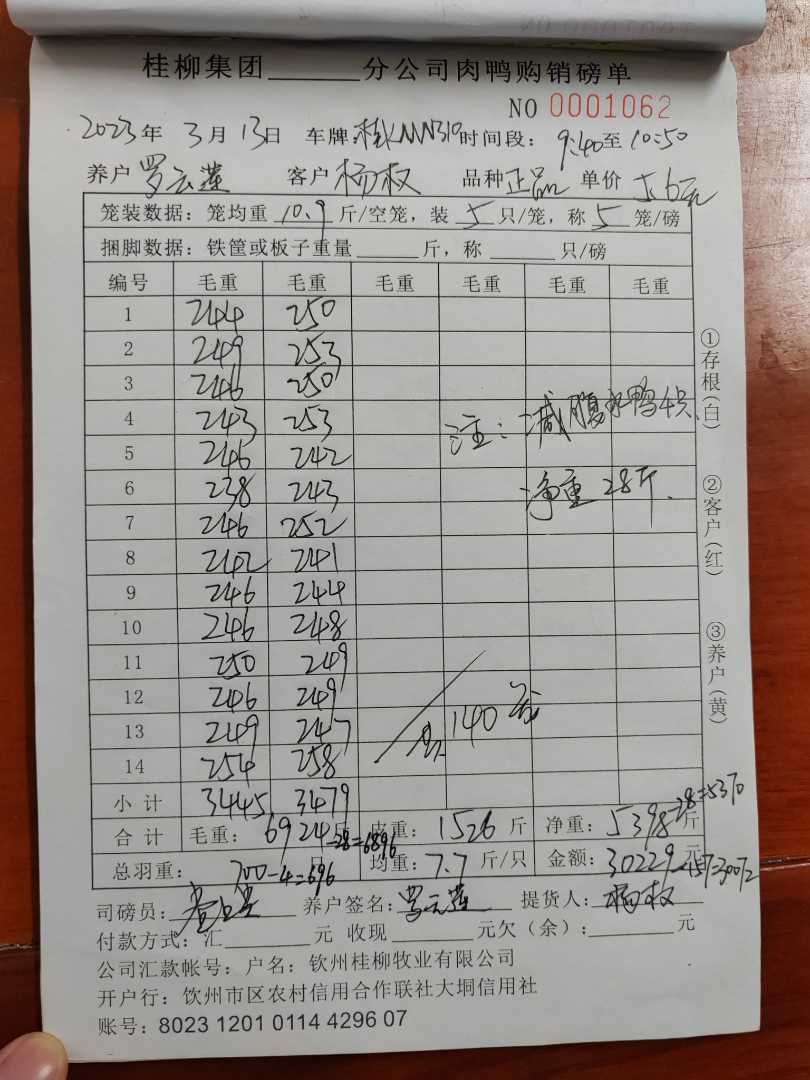 桂柳集团______分公司肉鸭购销磅单
NO 0001062
2023年 3月 13日 车牌: 时间段: 9:40至10:50
养户 罗云莲 客户 杨权 品种 正品 单价 5.6元
笼装数据: 笼均重 10.9 斤/空笼, 装 5 只/笼, 称 5 笼/磅
捆脚数据: 铁筐或板子重量______斤, 称______只/磅
编号 毛重 毛重 毛重 毛重 毛重 毛重
1 244 250
2 249 253
3 246 250
4 243 253
5 246 242
6 238 243
7 246 252
8 242 241
9 246 244
10 246 248
11 250 249
12 246 249
13 249 247
14 254 258
小计 3445 3479
注: 减腹水鸭4只.
净重28斤.
共140笼
合计 毛重: 6924斤-28=6896 皮重: 1526 斤 净重: 5398斤-28=5370
总羽重: 700-4=696 只 均重: 7.7 斤/只 金额: 30229元-157=30072
司磅员: 养户签名: 罗云莲 提货人: 杨权
付款方式: 汇______元 收现______元欠(余):______元
公司汇款帐号: 户名: 钦州桂柳牧业有限公司
开户行: 钦州市区农村信用合作联社大垌信用社
账号: 8023 1201 0114 4296 07
①存根(白)
②客户(红)
③养户(黄)